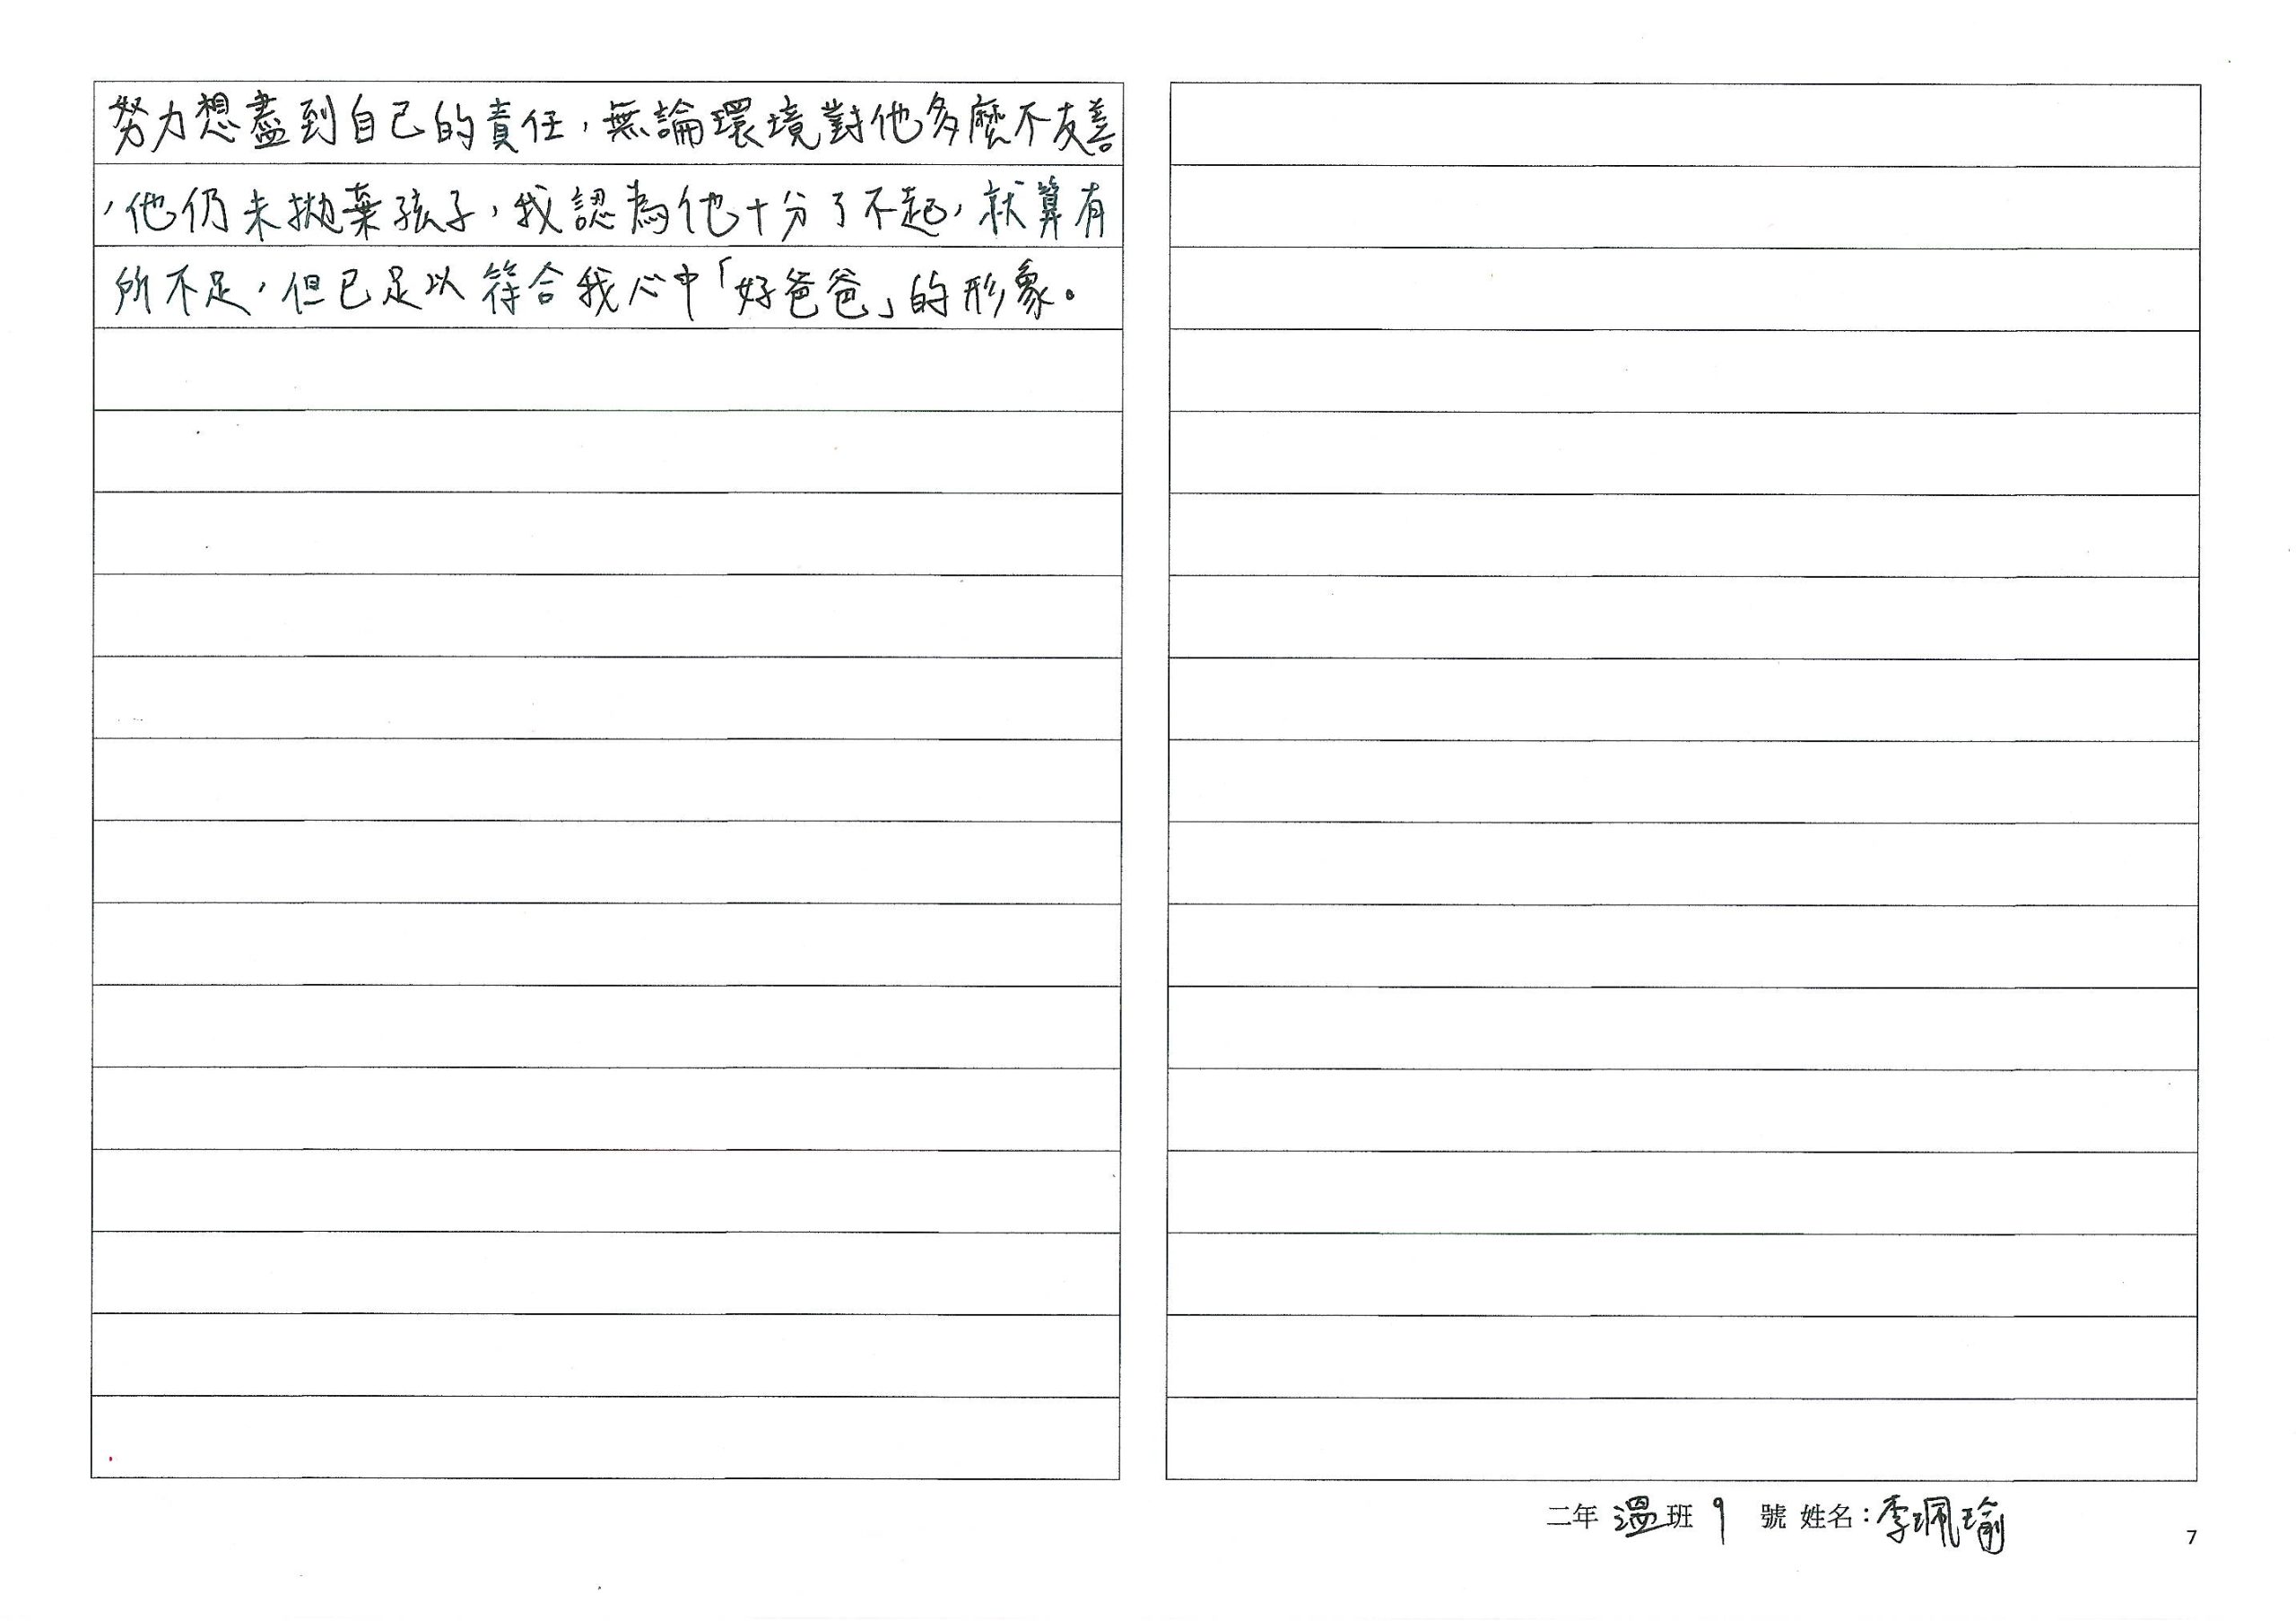 努力想盡到自己的責任，無論環境對他多麼不友善
，他仍未拋棄孩子，我認為他十分了不起，就算有
所不足，但已足以符合我心中「好爸爸」的形象。
二年 溫班 9 號 姓名：李珮瑜
7